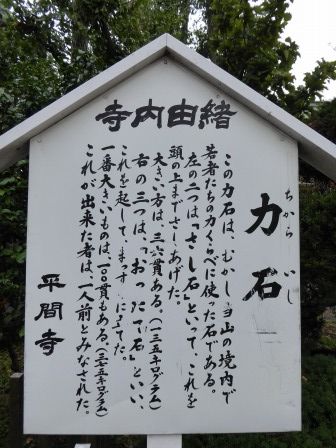 寺内由緒
力石
ちから いし
この力石は、むかし、当山の境内で
若者たちの力くらべに使った石である。
左の二つは「さし石」といって、これを
頭の上までさしあげた。
大きい方は、三六貫ある。(一三五キログラム)
右の三つは「おったて石」といい、
これを起して、まっすぐに立てた。
一番大きいものは一〇〇貫もある。(三七五キログラム)
これが出来た者は、一人前とみなされた。
平間寺